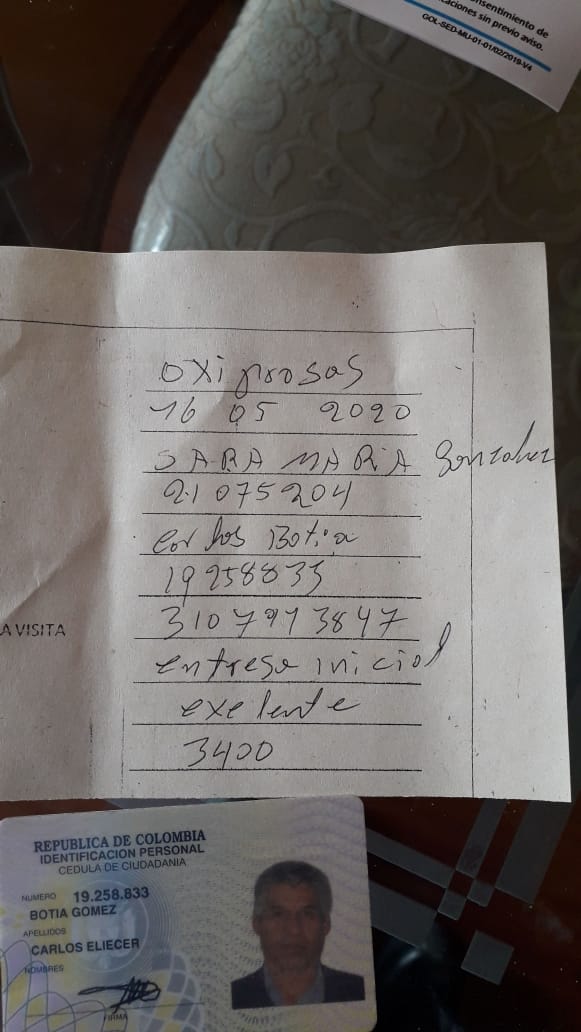 nsentimiento de
caciones sin previo aviso.
GOL-SED-MU-01-01/02/2019-V4
oxiprosas
16 05 2020
SARA MARIA Gonzalez
21075204
Carlos Botia
19258833
3107913847
A VISITA
entresa inicial
exelente
3400
REPUBLICA DE COLOMBIA
IDENTIFICACION PERSONAL
CEDULA DE CIUDADANIA
NUMERO 19.258.833
BOTIA GOMEZ
APELLIDOS
CARLOS ELIECER
NOMBRES
FIRMA